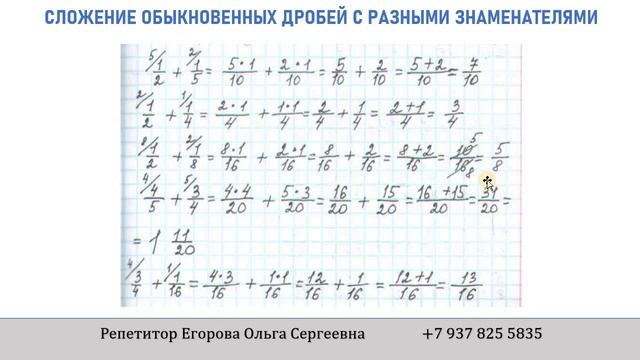 СЛОЖЕНИЕ ОБЫКНОВЕННЫХ ДРОБЕЙ С РАЗНЫМИ ЗНАМЕНАТЕЛЯМИ
⁵⁄1/2 + ²⁄1/5 = 5·1/10 + 2·1/10 = 5/10 + 2/10 = 5+2/10 = 7/10
²⁄1/2 + ¹⁄1/4 = 2·1/4 + 1·1/4 = 2/4 + 1/4 = 2+1/4 = 3/4
⁸⁄1/2 + ²⁄1/8 = 8·1/16 + 2·1/16 = 8/16 + 2/16 = 8+2/16 = 10 5/16 8 = 5/8
⁴⁄4/5 + ⁵⁄3/4 = 4·4/20 + 5·3/20 = 16/20 + 15/20 = 16+15/20 = 31/20 =
= 1 11/20
⁴⁄3/4 + ¹⁄1/16 = 4·3/16 + 1·1/16 = 12/16 + 1/16 = 12+1/16 = 13/16
Репетитор Егорова Ольга Сергеевна +7 937 825 5835